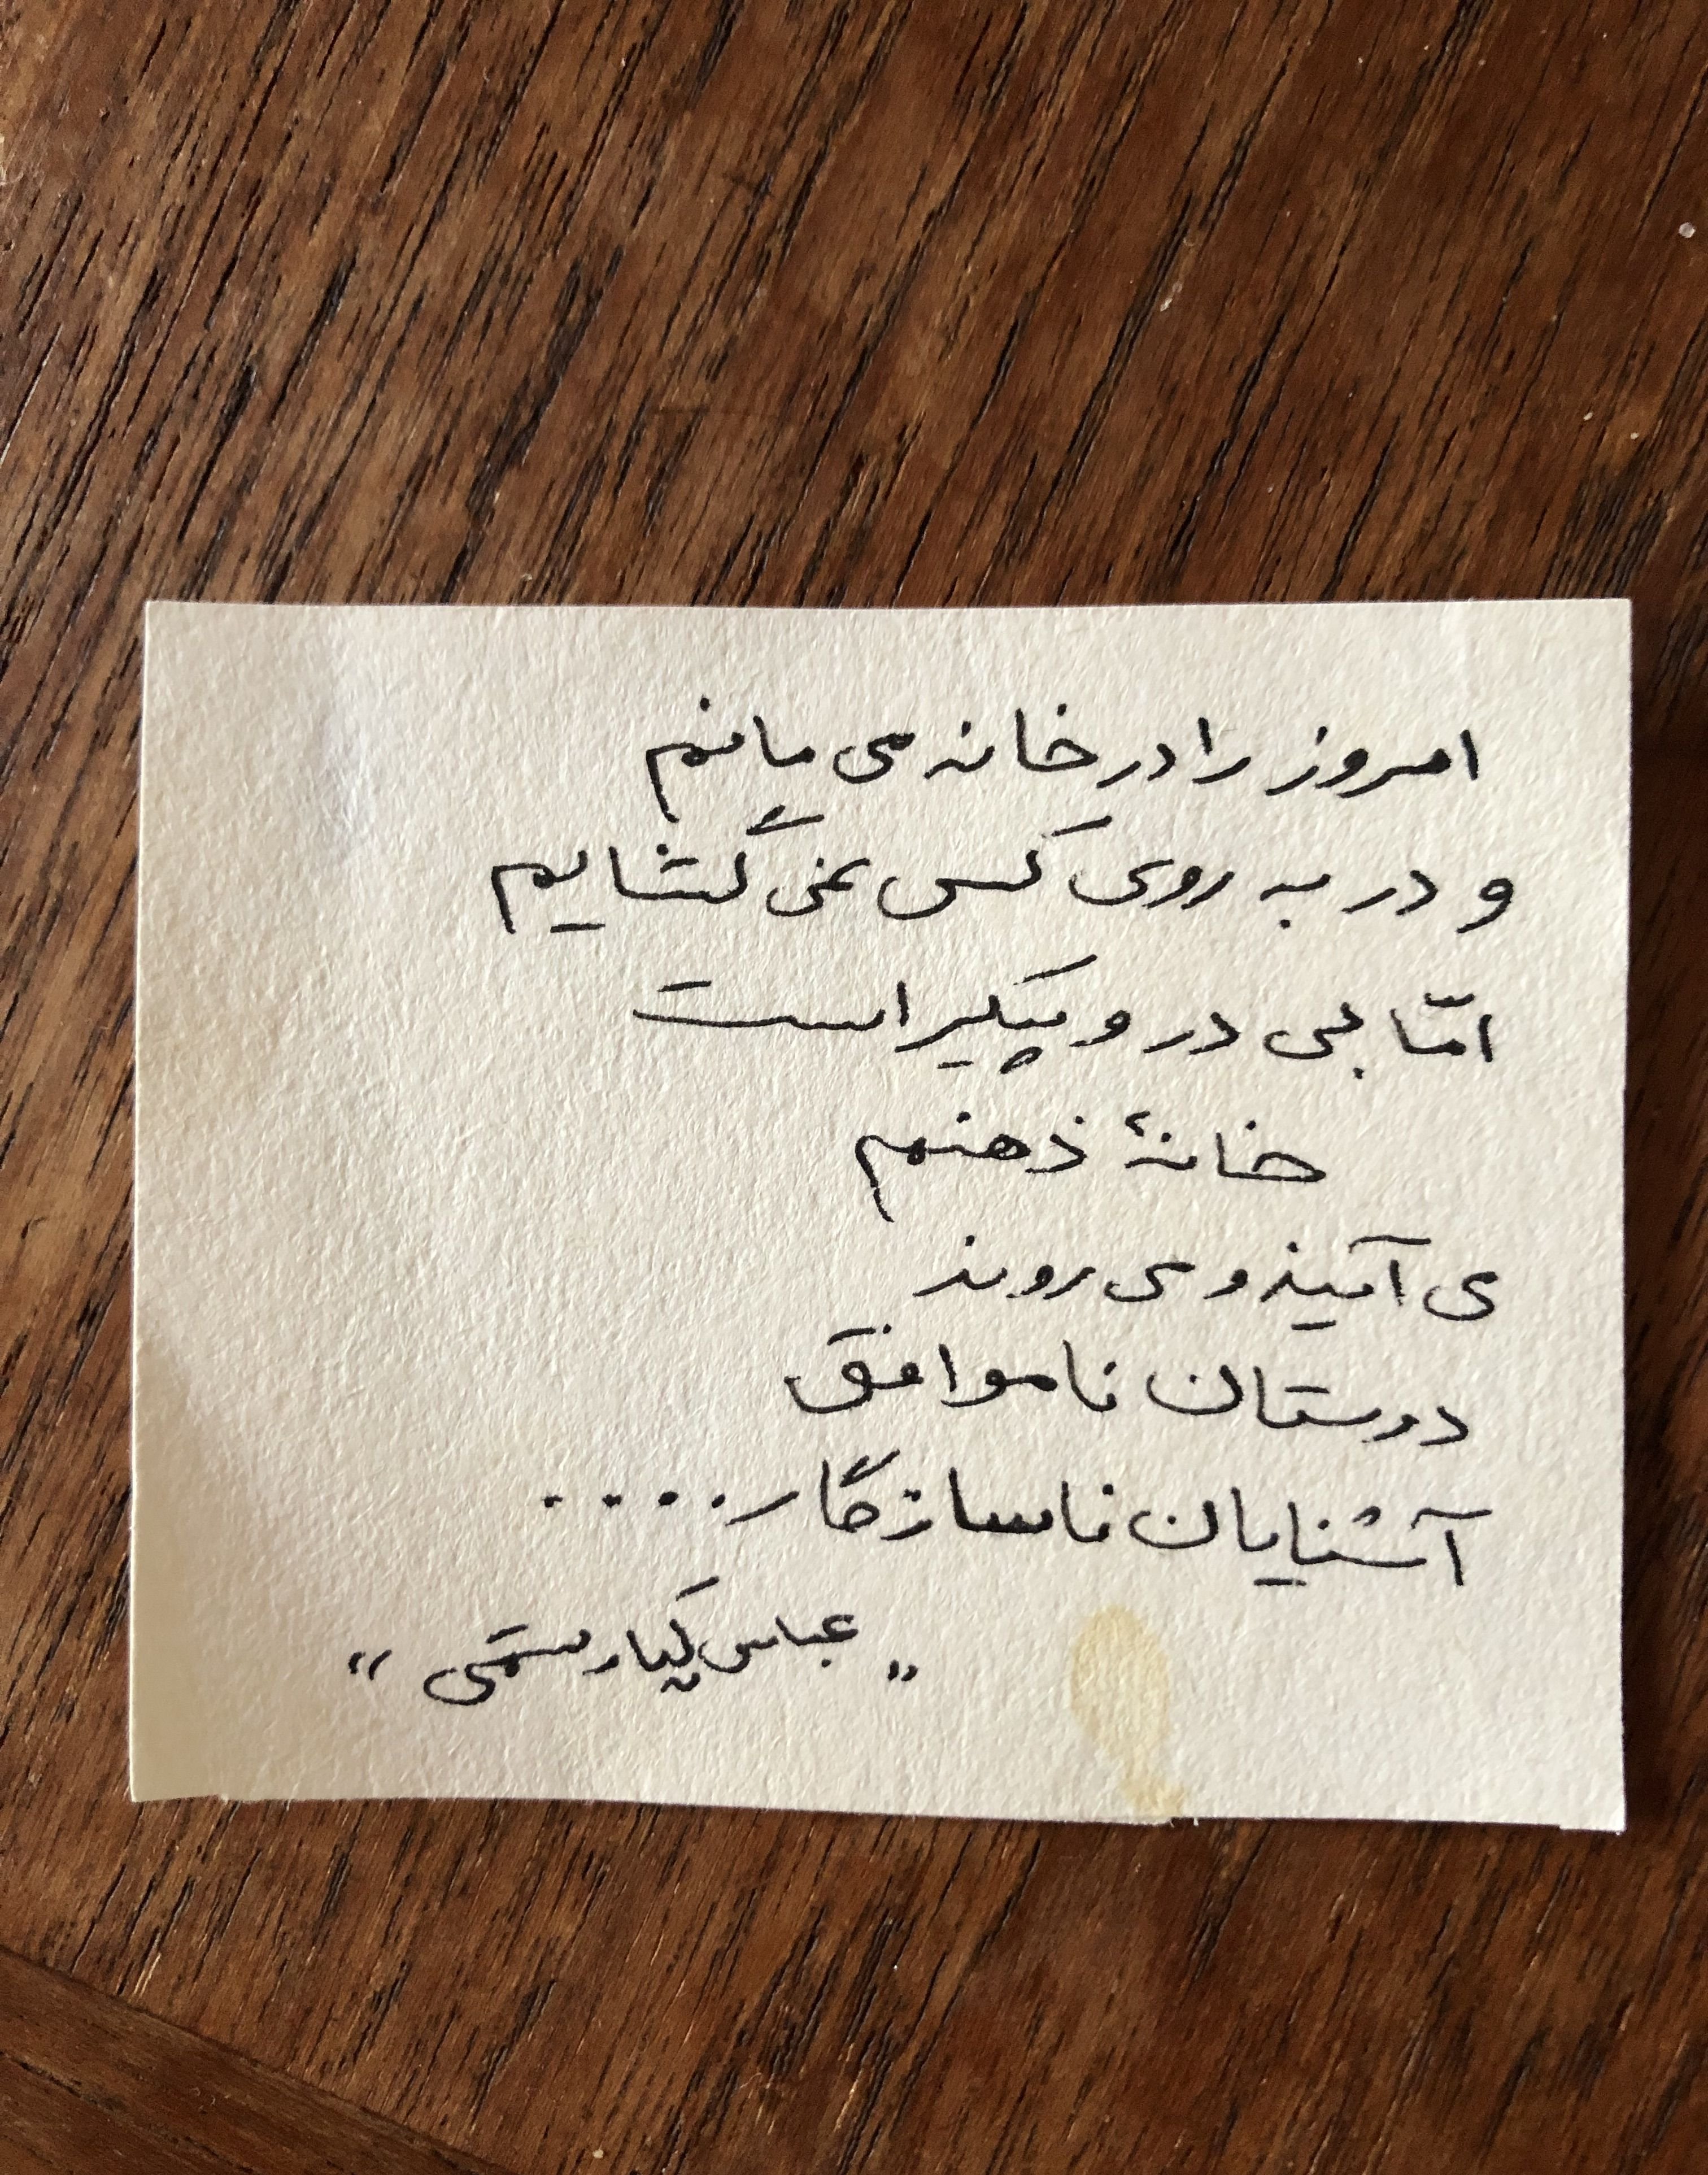 امروز را در خانه می مانم
و در به روی کسی نمی گشایم
امّا بی در و پیکر است
خانهٔ ذهنم
می آیند و می روند
دوستان ناموافق
آشنایان ناسازگار....
"عباس کیارستمی"